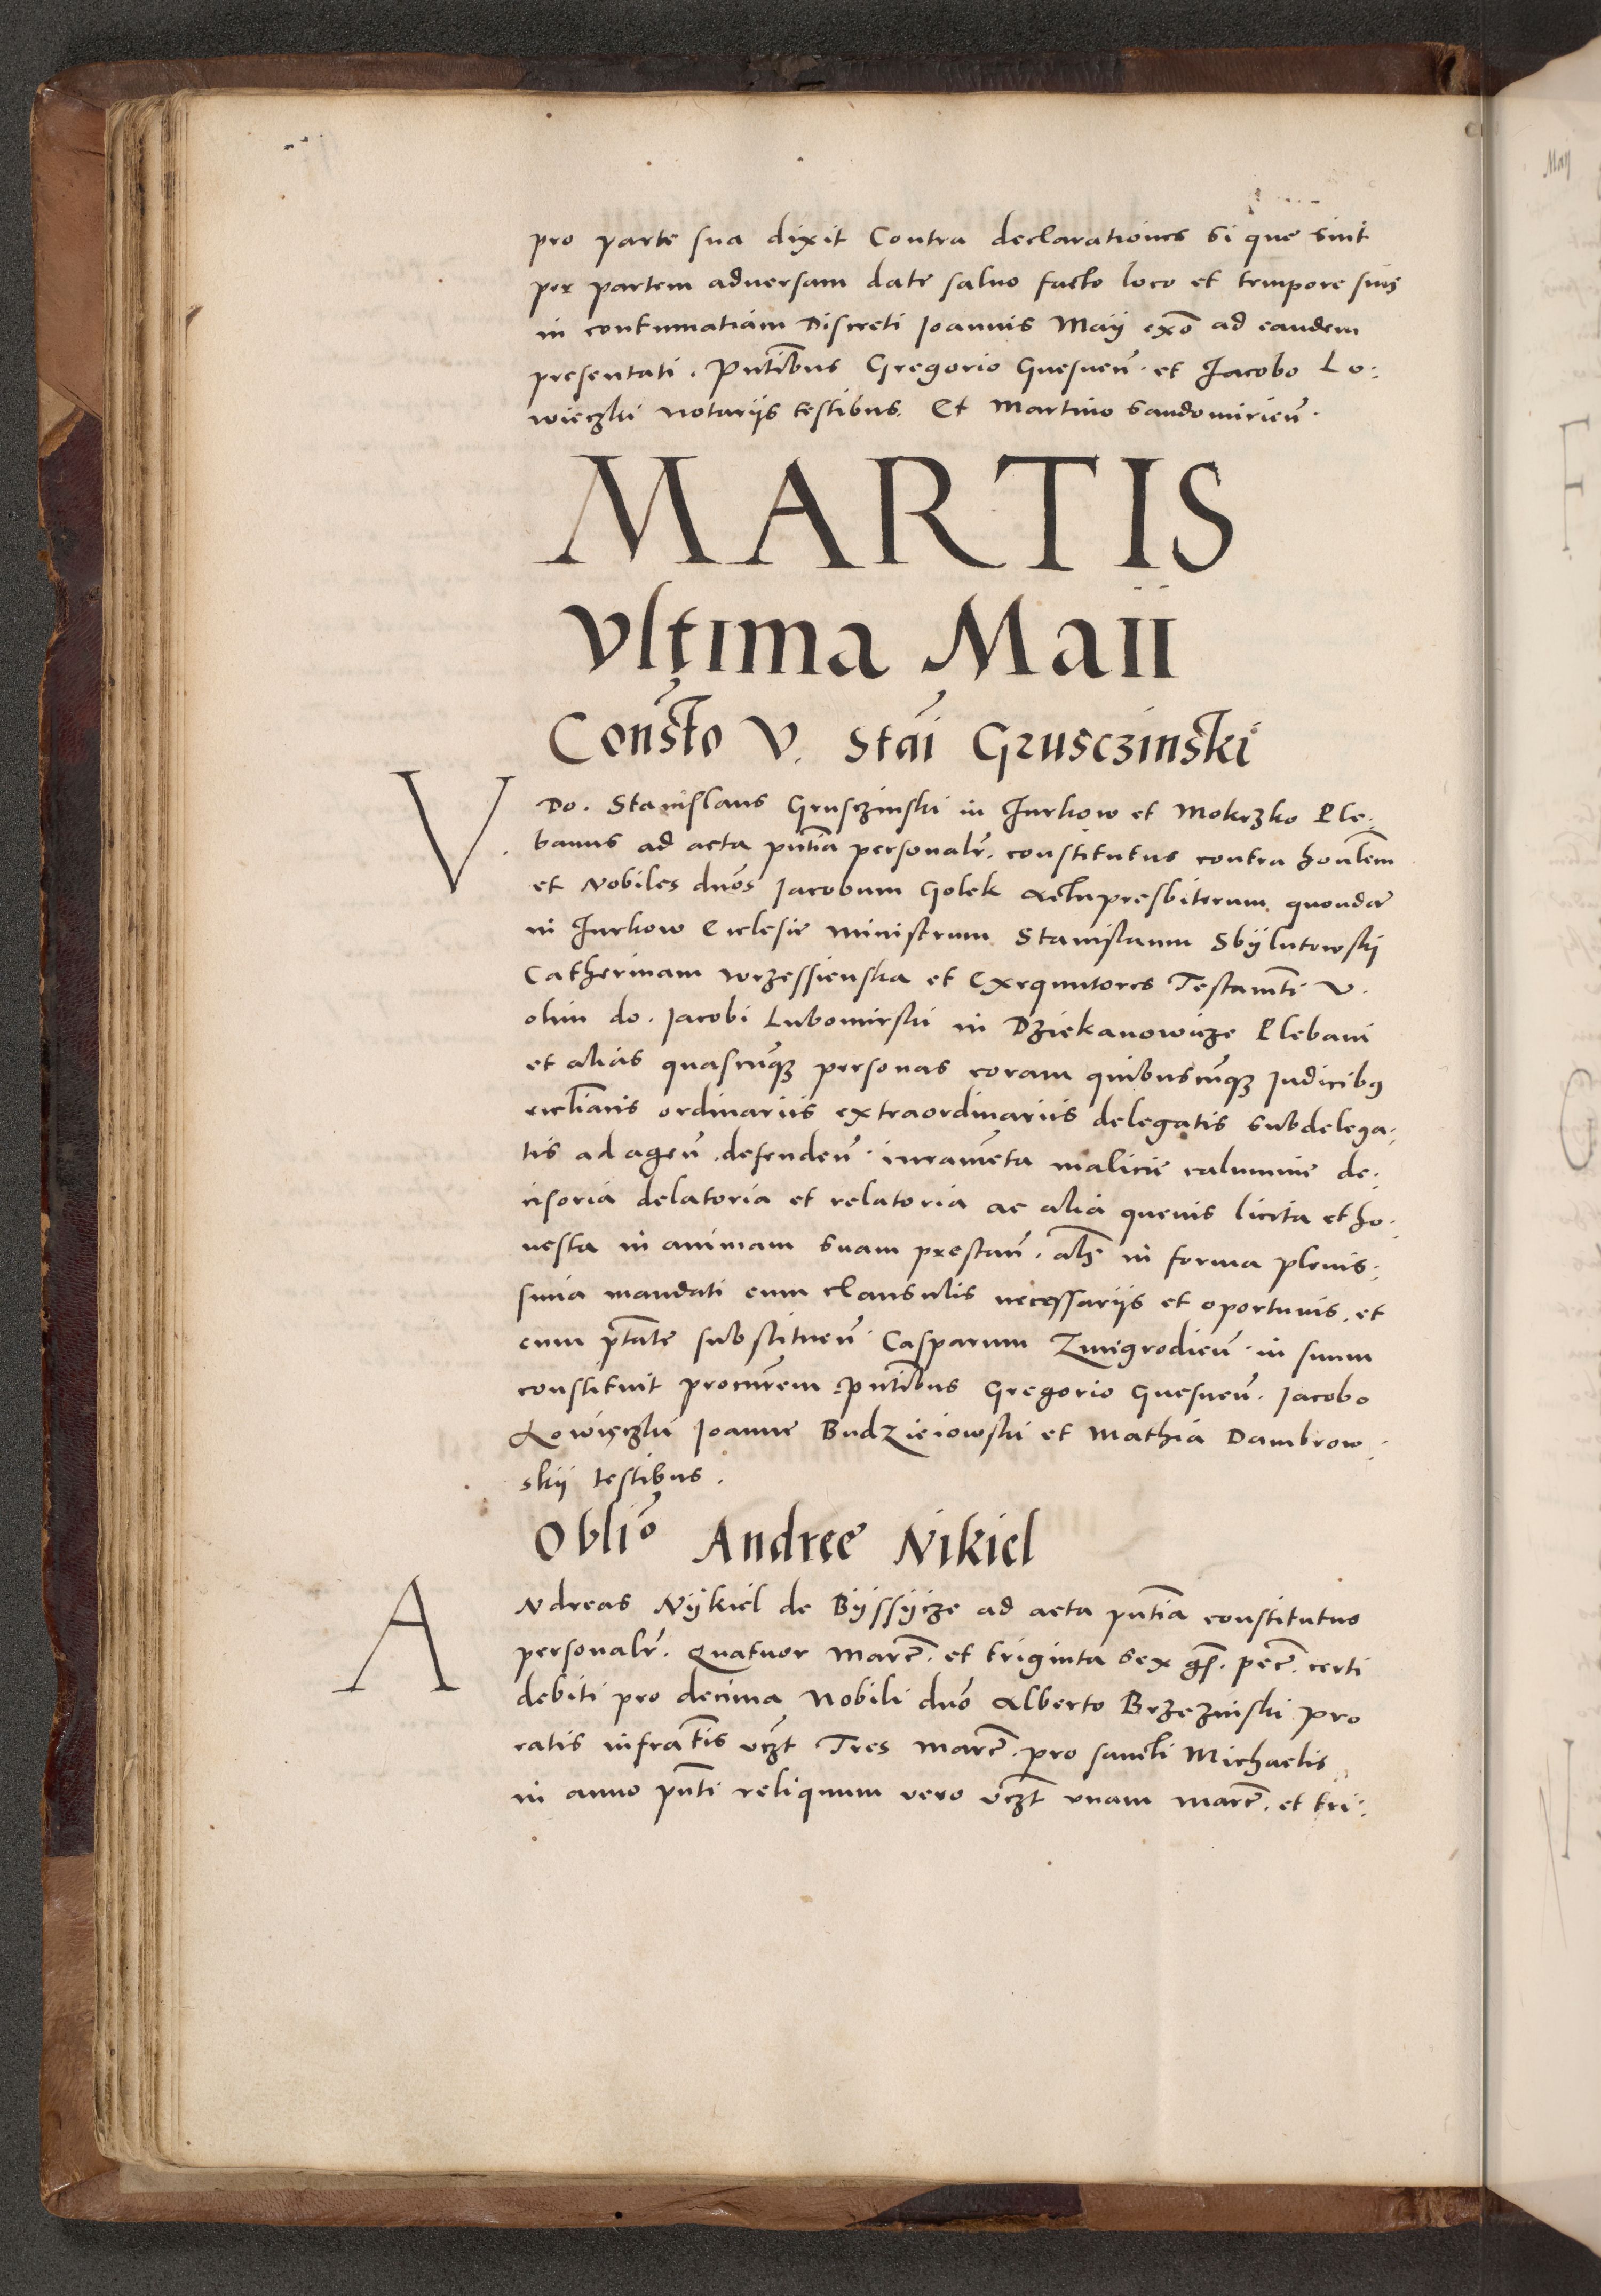 pro parte sua dixit Contra declarationes si que sint
per partem adversam date salvo facto loco et tempore suis
in contumatiam Discreti Joannis Maij exõ ad eandem
presentati. Pñtibus Gregorio Gnesneñ. et Jacobo Lo:
wieczki notarijs testibus. Et Martino Sandomirieñ.
MARTIS
Vltima Maii
Consto V. Stai Grusczinski
V. Do. Stanislaus Grusczinski in Jurkow et Mokrzko Ple:
banus ad acta pñtia personalr. constitutus contra honlem
et Nobiles dnos Jacobum Golek Altapresbiterum quondã
in Jurkow Ecclesie ministrum Stanislaum Sbijlutowskij
Catherinam Wrzessienska et Exequutores Testamti V.
olim do. Jacobi Lubomirski in Dziekanowicze Plebani
et alias quascunq3 personas coram quibuscunq3 Judicibus
ecclianis ordinariis extraordinariis delegatis subdelega:
tis ad ageñ. defendeñ. iuramēta malicie calumnie de:
cisoria delatoria et relatoria ac alia quevis licita et ho:
nesta in animam suam prestañ. als in forma plenis:
sima mandati cum clausulis necessarijs et oportunis. et
cum ptate substitueñ. Casparum Zmigrodieñ. in suum
constituit procurem. pñtibus Gregorio Gnesneñ. Jacobo
Lowięczki Joanne Budzieiowski et Mathia Dambrow:
skij testibus.
Oblio Andreę Nikiel
ANdreas Nijkiel de Bijssijcze ad acta pñtia constitutus
personalr. Quatuor marc. et triginta sex gs. pec. certi
debiti pro decima Nobili dno Alberto Brzezinski pro
ratis infratis vczt Tres marc. pro sancti Michaelis
in anno pñti reliquum vero vczt vnam marc. et tri:
Maij